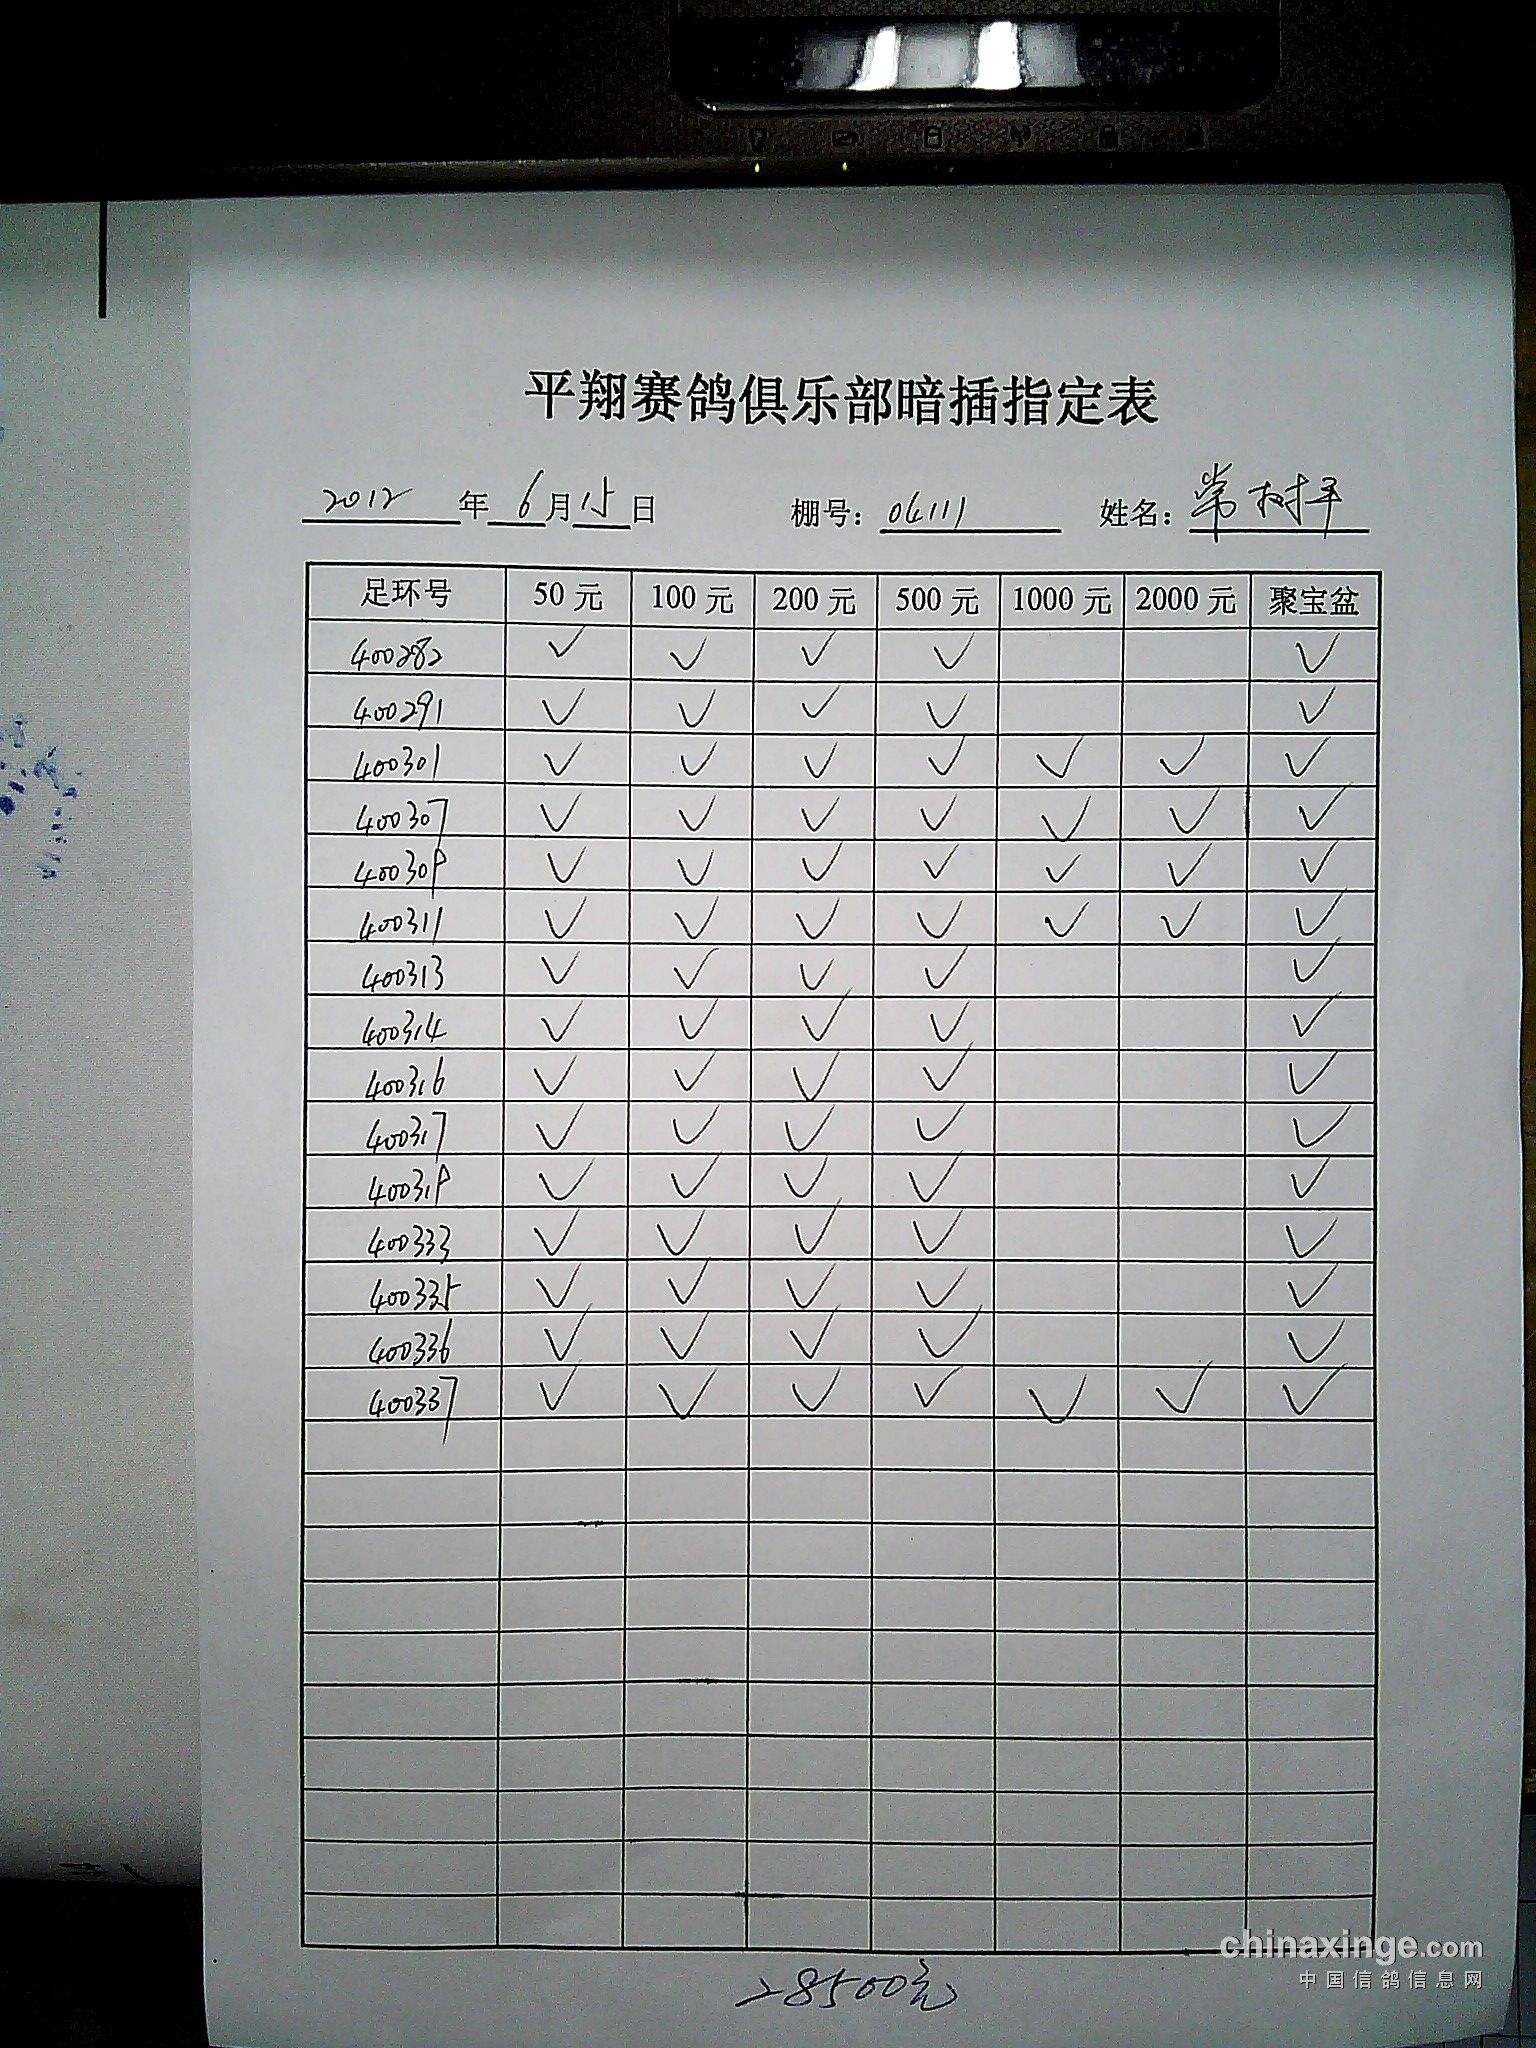 平翔赛鸽俱乐部暗插指定表
2012 年 6 月 15 日 棚号: 04111 姓名: 常树平
足环号 50 元 100 元 200 元 500 元 1000 元 2000 元 聚宝盆
400282 ✓ ✓ ✓ ✓ ✓
400291 ✓ ✓ ✓ ✓ ✓
400301 ✓ ✓ ✓ ✓ ✓ ✓ ✓
400307 ✓ ✓ ✓ ✓ ✓ ✓ ✓
400309 ✓ ✓ ✓ ✓ ✓ ✓ ✓
400311 ✓ ✓ ✓ ✓ ✓ ✓ ✓
400313 ✓ ✓ ✓ ✓ ✓
400314 ✓ ✓ ✓ ✓ ✓
400316 ✓ ✓ ✓ ✓ ✓
400317 ✓ ✓ ✓ ✓ ✓
400319 ✓ ✓ ✓ ✓ ✓
400333 ✓ ✓ ✓ ✓ ✓
400335 ✓ ✓ ✓ ✓ ✓
400336 ✓ ✓ ✓ ✓ ✓
400337 ✓ ✓ ✓ ✓ ✓ ✓ ✓
28500元
chinaxinge.com
中国信鸽信息网